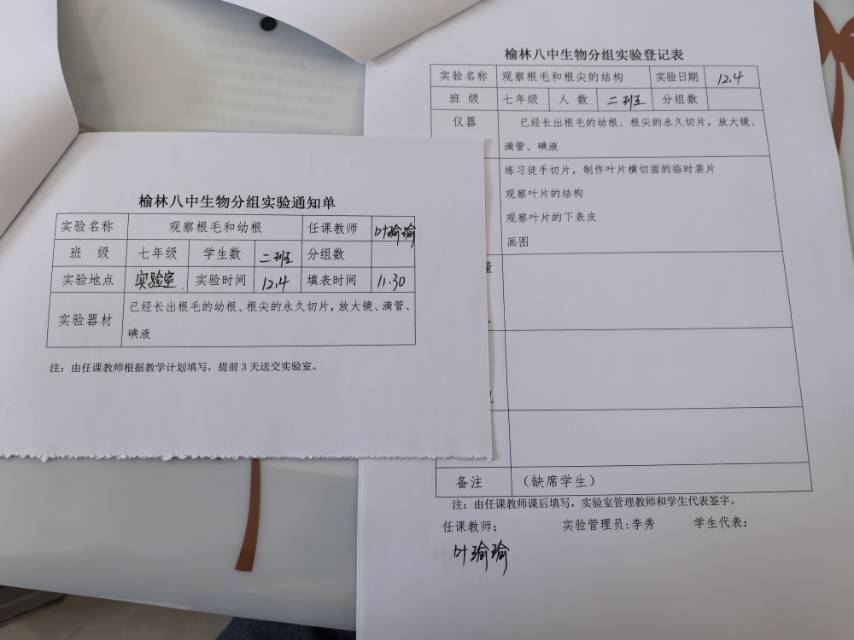 榆林八中生物分组实验通知单
实验名称 观察根毛和幼根 任课教师 叶瑜瑜
班 级 七年级 学生数 二班 分组数
实验地点 实验室. 实验时间 12.4 填表时间 11.30
实验器材 已经长出根毛的幼根、根尖的永久切片，放大镜、滴管、
碘液
注：由任课教师根据教学计划填写，提前 3 天送交实验室。
榆林八中生物分组实验登记表
实验名称 观察根毛和根尖的结构 实验日期 12.4
班 级 七年级 人 数 二班 分组数
仪器 已经长出根毛的幼根、根尖的永久切片，放大镜、
滴管、碘液
练习徒手切片，制作叶片横切面的临时装片
观察叶片的结构
观察叶片的下表皮
画图
备注 （缺席学生）
注：由任课教师课后填写，实验室管理教师和学生代表签字。
任课教师： 实验管理员:李秀 学生代表：
叶瑜瑜